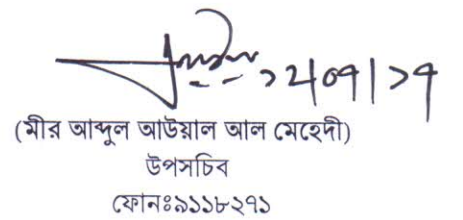 ১২/০৭/১৭
(মীর আব্দুল আউয়াল আল মেহেদী)
উপসচিব
ফোনঃ৯১১৮২৭১